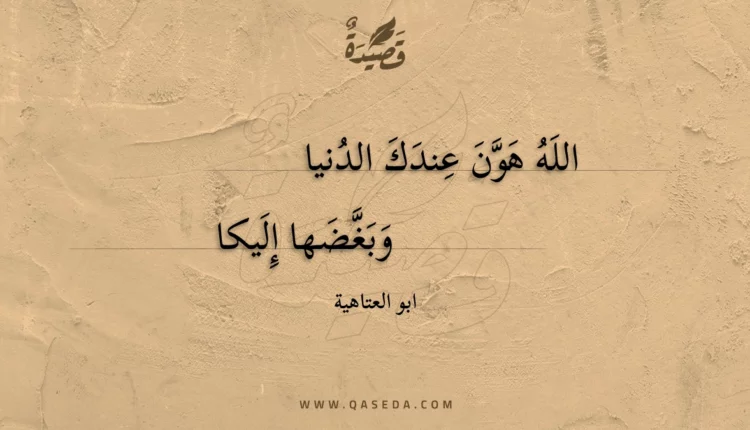 قَصِيدَةٌ
اللَهُ هَوَّنَ عِندَكَ الدُنيا
وَبَغَّضَها إِلَيكا
ابو العتاهية
WWW.QASEDA.COM